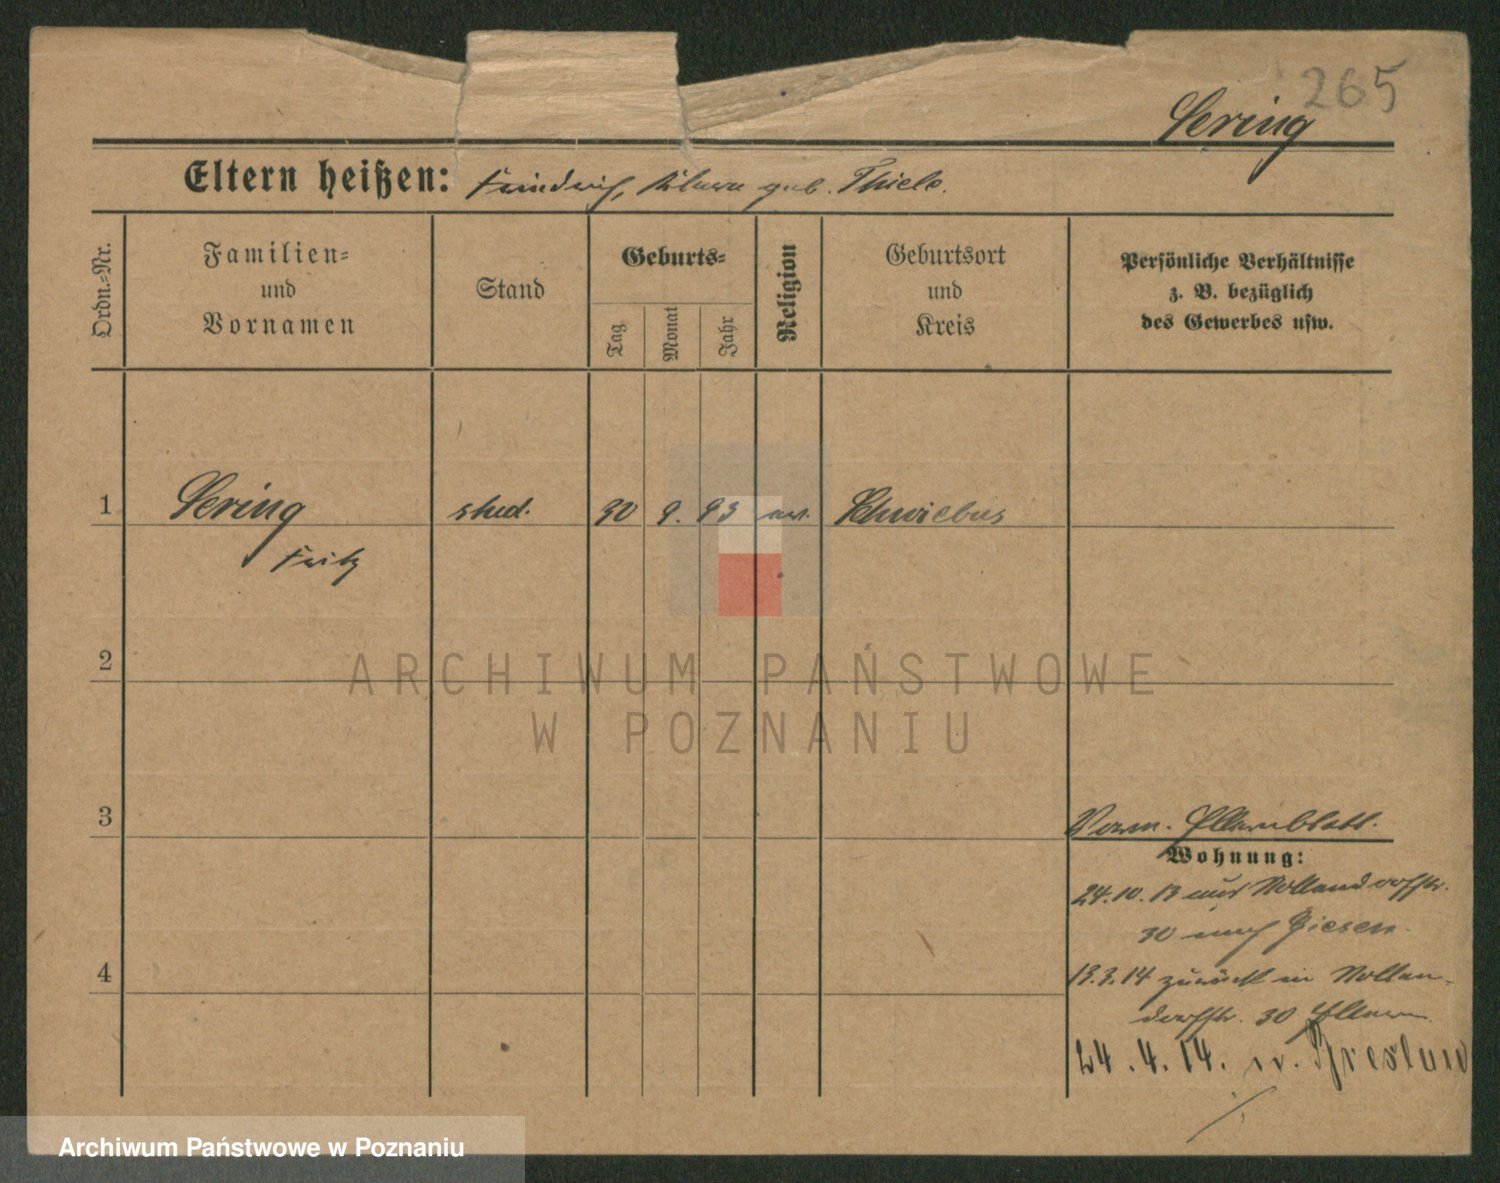 265
Sering
Eltern heißen: Friedrich, geb. Thiele.
Ordn.-Nr.
Familien-
und
Vornamen
Stand
Geburts-
Tag
Monat
Jahr
Religion
Geburtsort
und
Kreis
Persönliche Verhältnisse
z. B. bezüglich
des Gewerbes usw.
1 Sering stud. 30 9. 93 ev. Schwiebus
Fritz
2
3
4
Verm. Elternblatt.
Wohnung:
24.10.13 aus Nollendorfstr.
30 nach Giesen.
13.3.14 zurück in Nollen-
dorfstr. 30 Eltern
24.4.14. n. Breslau
ARCHIWUM PAŃSTWOWE
W POZNANIU
Archiwum Państwowe w Poznaniu